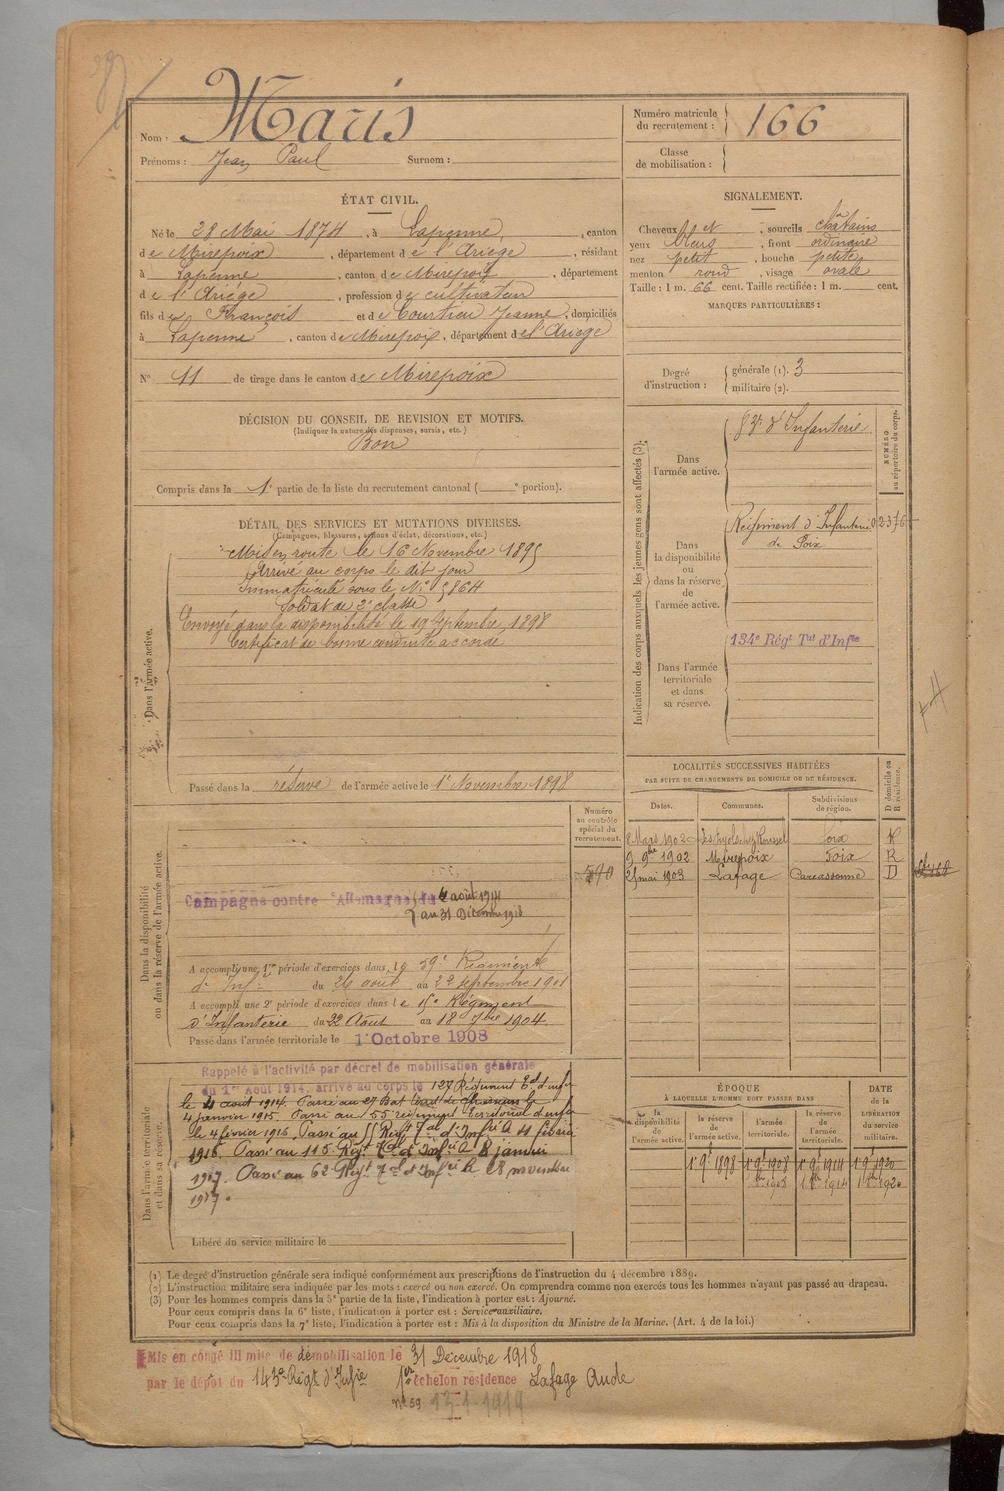 Nom : Maris
Prénoms : Jean Paul Surnom :
Numéro matricule du recrutement : 166
Classe de mobilisation :
ÉTAT CIVIL.
Né le 28 Mai 1874, à Lapenne, canton
de Mirepoix, département de l'Ariège, résidant
à Lapenne, canton de Mirepoix, département
de l'Ariége, profession de cultivateur
fils de François et de Courtieu Jeanne, domiciliés
à Lapenne, canton de Mirepoix, département de l'Ariege
N° 11 de tirage dans le canton de Mirepoix
SIGNALEMENT.
Cheveux et, sourcils châtains
yeux bleus, front ordinaire
nez petit, bouche petite
menton rond, visage ovale
Taille : 1 m. 66 cent. Taille rectifiée : 1 m. cent.
MARQUES PARTICULIÈRES :
Degré d'instruction : générale (1). 3
militaire (2).
DÉCISION DU CONSEIL DE REVISION ET MOTIFS.
(Indiquer la nature des dispenses, sursis, etc.)
Bon
Compris dans la 1e partie de la liste du recrutement cantonal ( e portion).
DÉTAIL DES SERVICES ET MUTATIONS DIVERSES.
(Campagnes, blessures, actions d'éclat, décorations, etc.)
Dans l'armée active.
Mis en route le 16 Novembre 1895
Arrivé au corps le dit jour
Immatriculé sous le N° 5864
Soldat de 2e classe
Envoyé dans la disponibilité le 19 Septembre 1898
Certificat de bonne conduite accordé
Passé dans la réserve de l'armée active le 1r Novembre 1898
Indication des corps auxquels les jeunes gens sont affectés (3).
NUMÉRO au répertoire du corps.
Dans l'armée active.
83e d'Infanterie
Dans la disponibilité ou dans la réserve de l'armée active.
Régiment d'Infanterie
de Foix
Dans l'armée territoriale et dans sa réserve.
134e Régt Tal d'Infie
LOCALITÉS SUCCESSIVES HABITÉES
PAR SUITE DE CHANGEMENTS DE DOMICILE OU DE RÉSIDENCE.
Dates. Communes. Subdivisions de région. D domicile ou R résidence.
8 Mars 1902 Foix R
9 9bre 1902 Mirepoix Foix R
25 mai 1903 Lafage Carcassonne D
Dans la disponibilité ou dans la réserve de l'armée active.
Numéro au contrôle spécial du recrutement.
590
Campagne contre l'Allemagne du 4 août 1914
au 31 Décembre 1918
A accompli une 1re période d'exercices dans le 59e Régiment
d'Infie du 26 août au 22 septembre 1901
A accompli une 2e période d'exercices dans le 15e Régiment
d'Infanterie du 22 Août au 18 7bre 1904
Passé dans l'armée territoriale le 1r Octobre 1908
Dans l'armée territoriale et dans sa réserve.
Rappelé à l'activité par décret de mobilisation générale
du 1er Août 1914, arrivé au corps le 127 Régiment
le 4 aout 1914. Passé au 27 Bat
4 janvier 1915. Passé au 55 régiment Territorial d'infie
le 4 février 1916. Passé au Regt Tal d'Infie
1916. Passé au 115 Regt Tal d'Infie le 8 janvier
1917. Passé au 62 Regt Tal d'Infie le 28 novembre
1917.
Libéré du service militaire le
ÉPOQUE
À LAQUELLE L'HOMME DOIT PASSER DANS
la disponibilité de l'armée active. la réserve de l'armée active. l'armée territoriale. la réserve de l'armée territoriale. DATE de la LIBÉRATION du service militaire.
1r 9bre 1898 1r 9bre 1908 1r 9bre 1914 1r 9bre 1920
1908 1914 1920
(1) Le degré d'instruction générale sera indiqué conformément aux prescriptions de l'instruction du 4 décembre 1889.
(2) L'instruction militaire sera indiquée par les mots : exercé ou non exercé. On comprendra comme non exercés tous les hommes n'ayant pas passé au drapeau.
(3) Pour les hommes compris dans la 5e partie de la liste, l'indication à porter est : Ajourné.
Pour ceux compris dans la 6e liste, l'indication à porter est : Service auxiliaire.
Pour ceux compris dans la 7e liste, l'indication à porter est : Mis à la disposition du Ministre de la Marine. (Art. 4 de la loi.)
Mis en congé ill mité de démobilisation le 31 Décembre 1918
par le dépôt du 143e Régt d'Infie 1er échelon résidence Lafage Aude
n° 59 13-1-1919